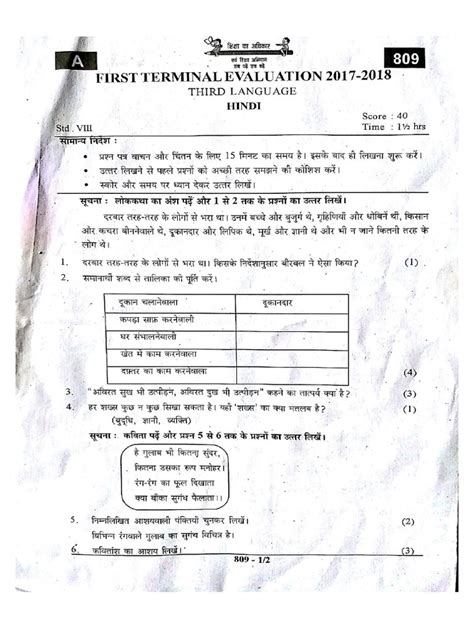 शिक्षा का अधिकार
सर्व शिक्षा अभियान
सब पढ़ें सब बढ़ें
A
809
FIRST TERMINAL EVALUATION 2017-2018
THIRD LANGUAGE
HINDI
Score : 40
Std. VIII
Time : 1½ hrs
सामान्य निर्देश :
• प्रश्न पत्र वाचन और चिंतन के लिए 15 मिनट का समय है। इसके बाद ही लिखना शुरू करें।
• उत्तर लिखने से पहले प्रश्नों को अच्छी तरह समझने की कोशिश करें।
• स्कोर और समय पर ध्यान देकर उत्तर लिखें।
सूचना : लोककथा का अंश पढ़ें और 1 से 2 तक के प्रश्नों का उत्तर लिखें।
दरबार तरह-तरह के लोगों से भरा था। उनमें बच्चे और बुजुर्ग थे, गृहिणियाँ और धोबिनें थीं, किसान
और कचरा बीननेवाले थे, दूकानदार और लिपिक थे, मूर्ख और ज्ञानी थे और भी न जाने कितनी तरह के
लोग थे।
1. दरबार तरह-तरह के लोगों से भरा था। किसके निर्देशानुसार बीरबल ने ऐसा किया? (1)
2. समानार्थी शब्द से तालिका की पूर्ति करें।
दूकान चलानेवाला दूकानदार
कपड़ा साफ़ करनेवाली
घर संभालनेवाली
खेत में काम करनेवाला
दफ़्तर का काम करनेवाला
(4)
3. "अविरत सुख भी उत्पीड़न, अविरत दुख भी उत्पीड़न" कहने का तात्पर्य क्या है? (3)
4. हर शख्स कुछ न कुछ सिखा सकता है। यहाँ 'शख्स' का क्या मतलब है? (1)
(बुद्धि, ज्ञानी, व्यक्ति)
सूचना : कविता पढ़ें और प्रश्न 5 से 6 तक के प्रश्नों का उत्तर लिखें।
हे गुलाब भी कितना सुंदर,
कितना उसका रूप मनोहर।
रंग-रंग का फूल दिखाता
क्या बाँका सुगंध फैलाता।।
5. निम्नलिखित आशयवाली पंक्तियाँ चुनकर लिखें। (2)
विभिन्न रंगवाले गुलाब का सुगंध विचित्र है।
6. कवितांश का आशय लिखें। (3)
809 - 1/2